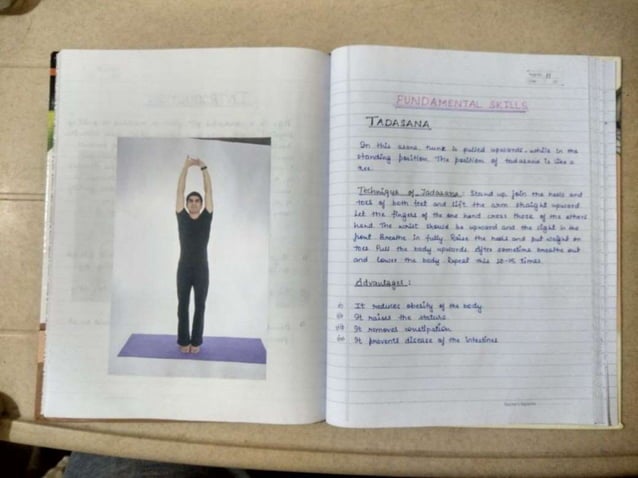 FUNDAMENTAL SKILLS
TADASANA
In this asana, trunk is pulled upwards, while in the
standing position. The position of tadasana is like a
tree.
Technique of Tadasana: Stand up, join the heels and
toes of both feet and lift the arm straight upward
Let the fingers of the one hand cross those of the others
hand. The waist should be upward and the sight in the
front. Breathe in fully. Raise the heels and put weight on
toes. Pull the body upwards. After sometime breathe out
and lower the body. Repeat this 10-15 times.
Advantages:
It reduces obesity of the body
It raises the stature
It removes constipation
It prevents disease of the intestines